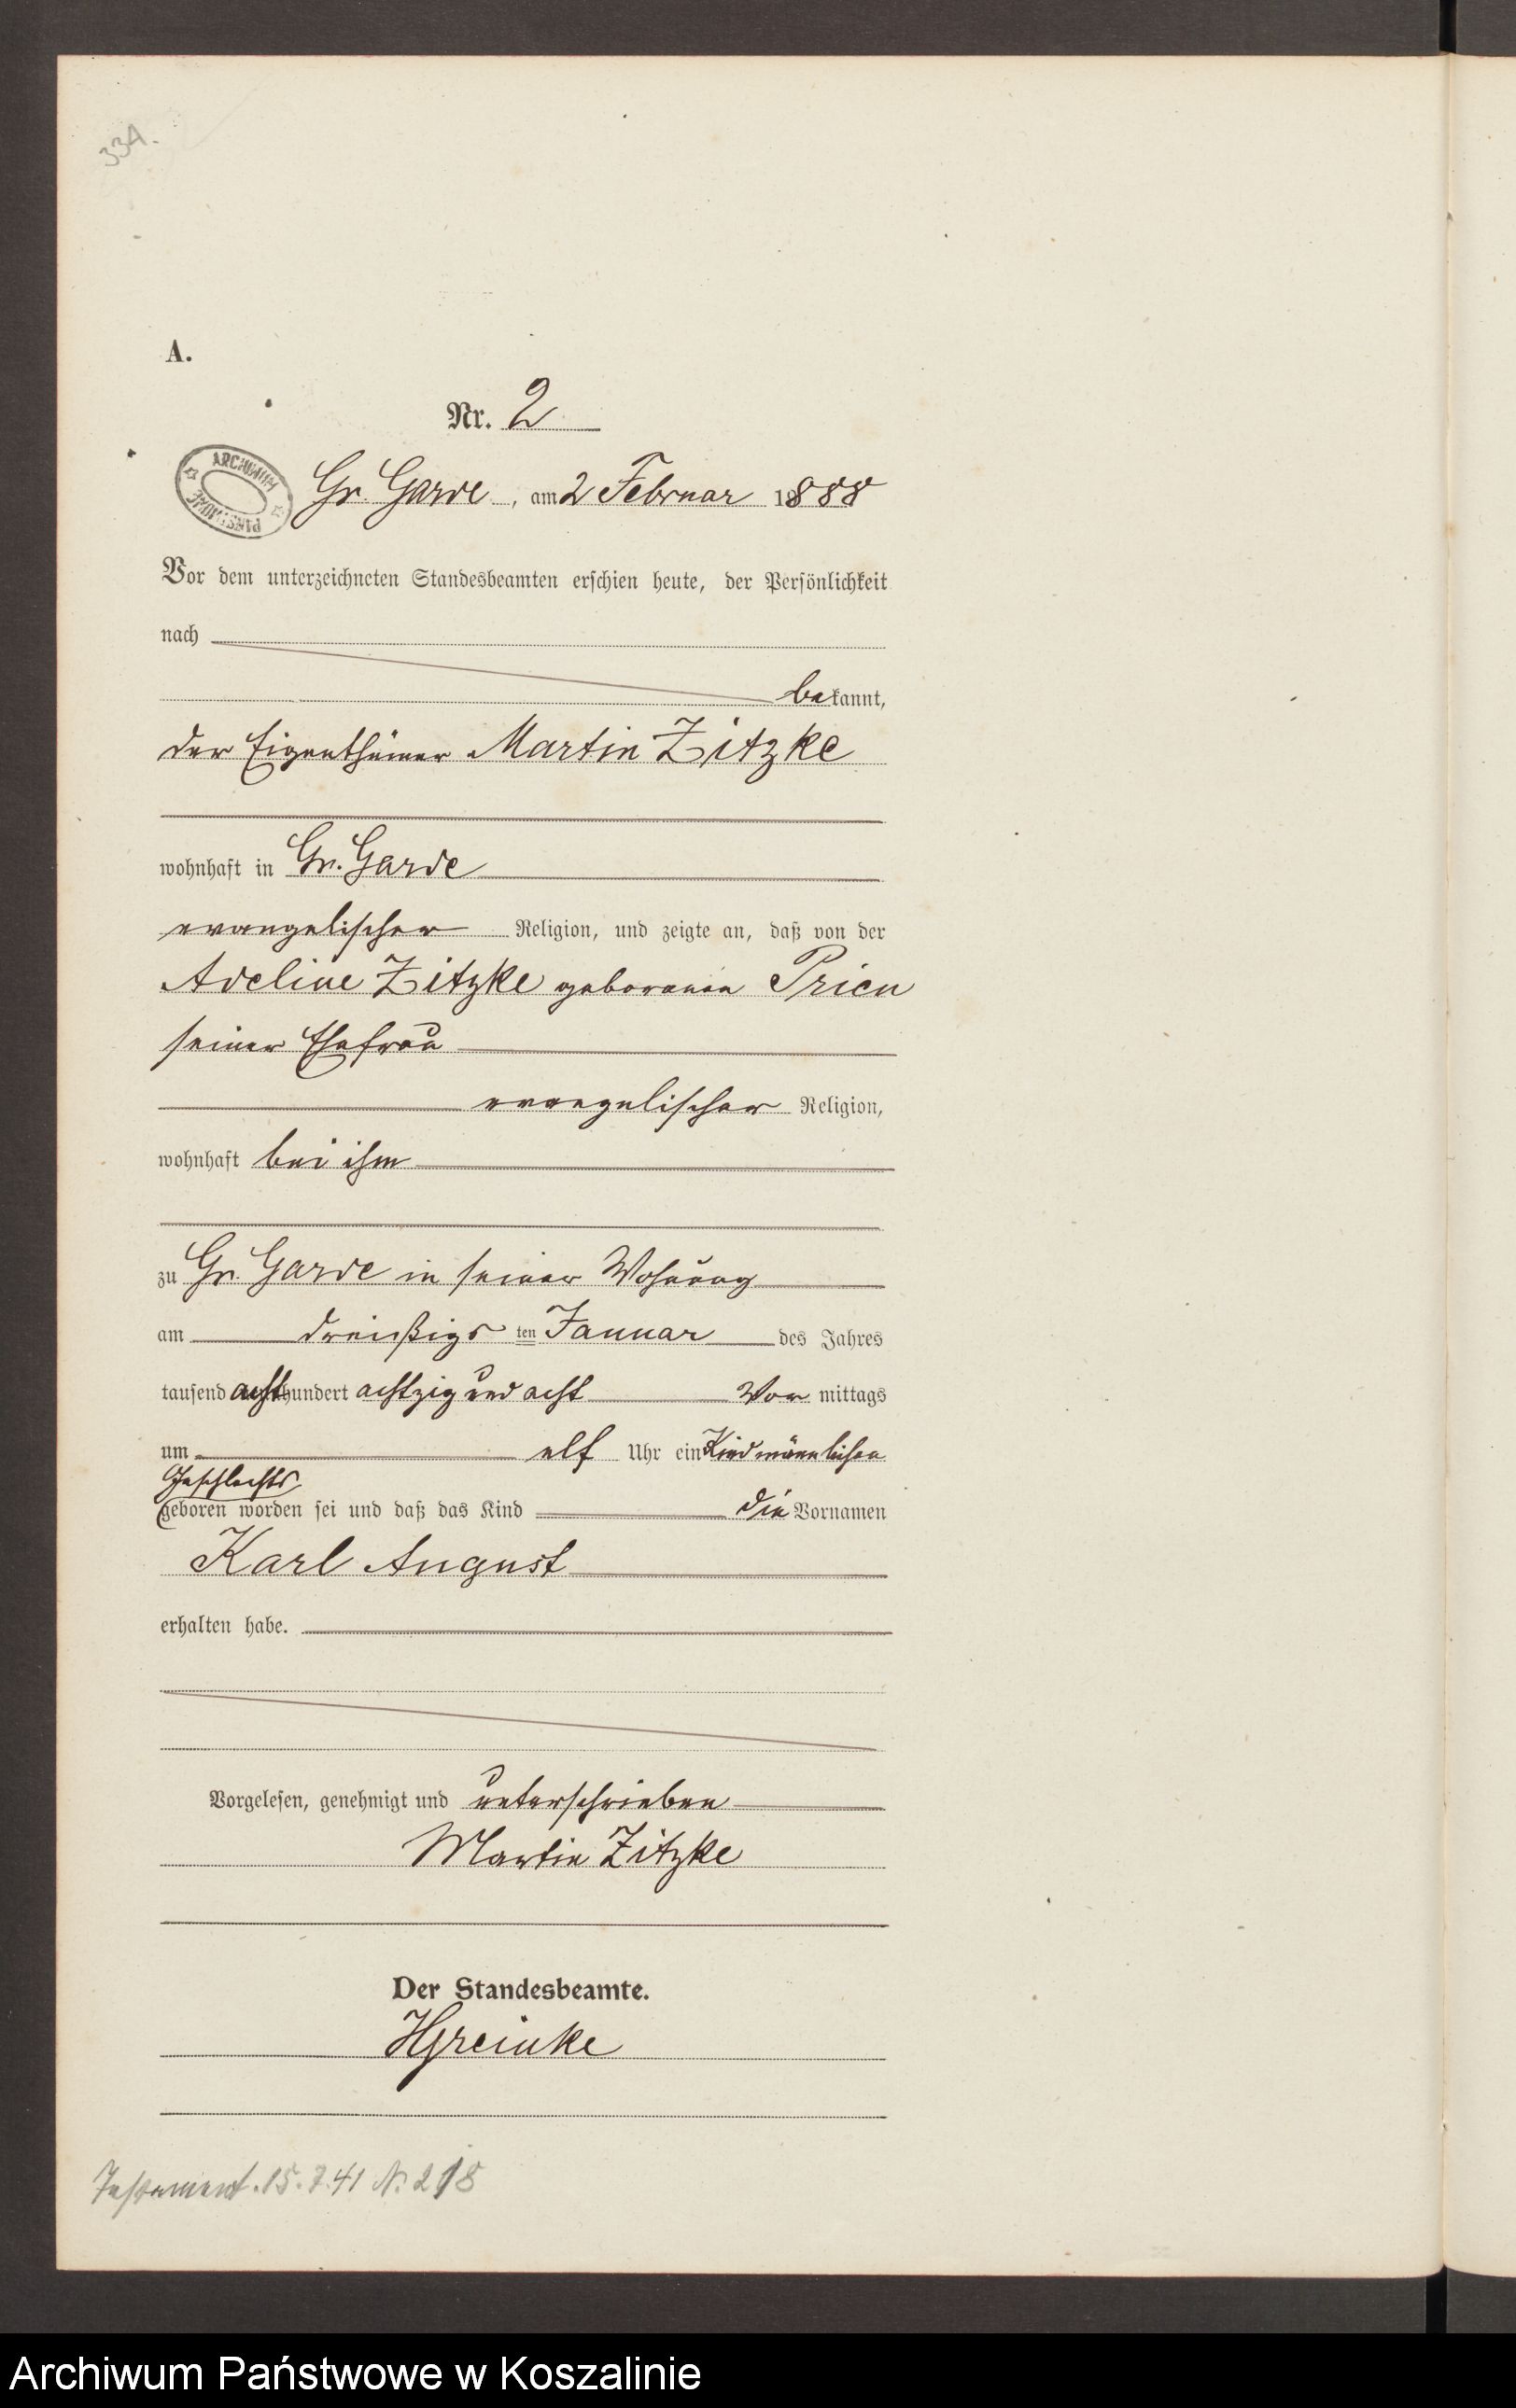 334.
A.
Nr. 2
ARCHIWUM PAŃSTWOWE
Gr. Garde, am 2 Februar 1888
Vor dem unterzeichneten Standesbeamten erschien heute, der Persönlichkeit
nach
bekannt,
der Eigenthümer Martin Zitzke
wohnhaft in Gr. Garde
evangelischer Religion, und zeigte an, daß von der
Adeline Zitzke geborenen Prien
seiner Ehefrau
evangelischer Religion,
wohnhaft bei ihm
zu Gr. Garde in seiner Wohnung
am dreißigs ten Januar des Jahres
tausend acht hundert achtzig und acht Vor mittags
um elf Uhr ein Kind männlichen
Geschlechts
geboren worden sei und daß das Kind die Vornamen
Karl August
erhalten habe.
Vorgelesen, genehmigt und unterschrieben
Martin Zitzke
Der Standesbeamte.
HGreinke
Testament. 15.7.41 N. 218
Archiwum Państwowe w Koszalinie